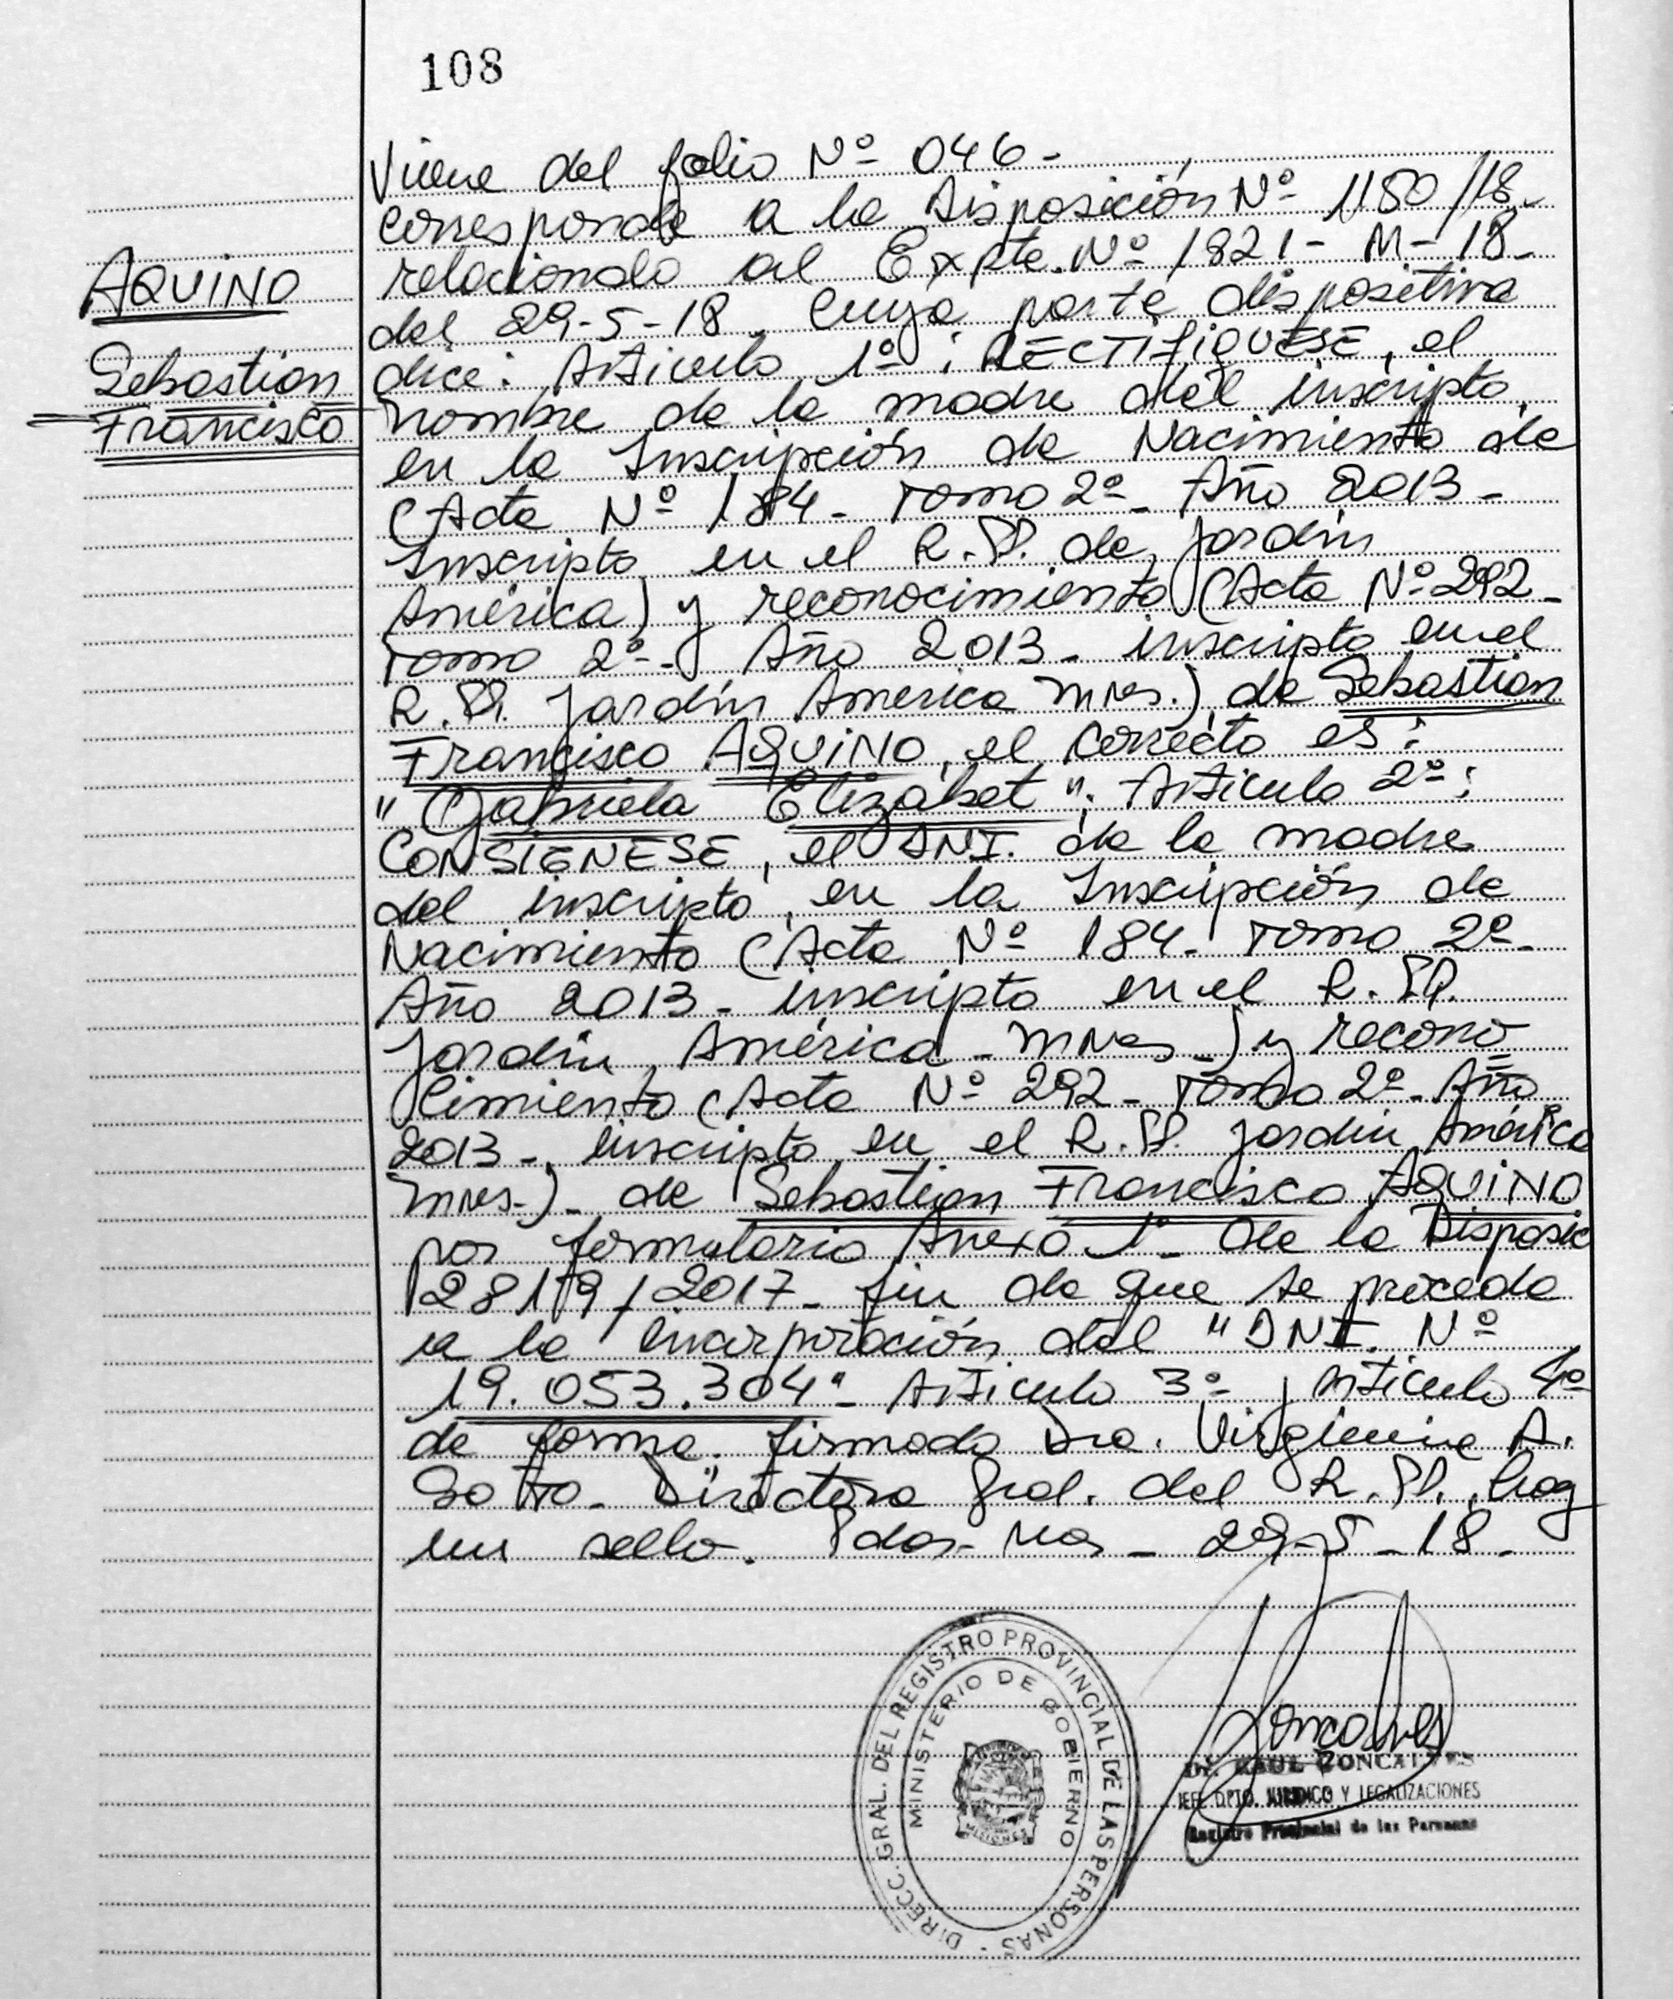 108
AQUINO
Sebastian
Francisco
Viene del folio Nº 046-
corresponde a la Disposición Nº 1180/18-
relacionado al Expte. Nº 1821- M-18-
del 29-5-18. Cuya parte dispositiva
dice: Articulo 1º: RECTIFIQUESE, el
nombre de la madre del inscripto,
en la Inscripción de Nacimiento de
(Acta Nº 184- Tomo 2º- Año 2013-
Inscripto en el R.P.P. de Jardín
América) y reconocimiento (Acta Nº 292-
Tomo 2º- Año 2013- inscripto en el
R.P.P. Jardín America Mnes.), de Sebastian
Francisco AQUINO, el correcto es:
"Gabriela Elizabet". Articulo 2º:
CONSIGNESE, el DNI. de la madre
del inscripto, en la Inscripción de
Nacimiento (Acta Nº 184- Tomo 2º-
Año 2013- inscripto en el R.P.P.
Jardín América- Mnes-) y recono
cimiento (Acta Nº 292- Tomo 2º- Año
2013-, inscripto en el R.P.P. Jardín América
Mnes-)- de Sebastian Francisco AQUINO
por formulario Anexo 1º- de la Disposic
2819/2017- fin de que se proceda
a la incorporación del "DNI. Nº
19.053.304"- Articulo 3º, Articulo 4º
de forma. firmado Dra. Virginia A.
Directora Gral. del R.P.P. hay
un sello. Pdas- Mas- 29-5-18-
DIRECC. GRAL. DEL REGISTRO PROVINCIAL DE LAS PERSONAS
MINISTERIO DE GOBIERNO
MISIONES
Goncalves
Dr. RAUL GONCALVES
JEFE DPTO. JURIDICO Y LEGALIZACIONES
Registro Provincial de las Personas